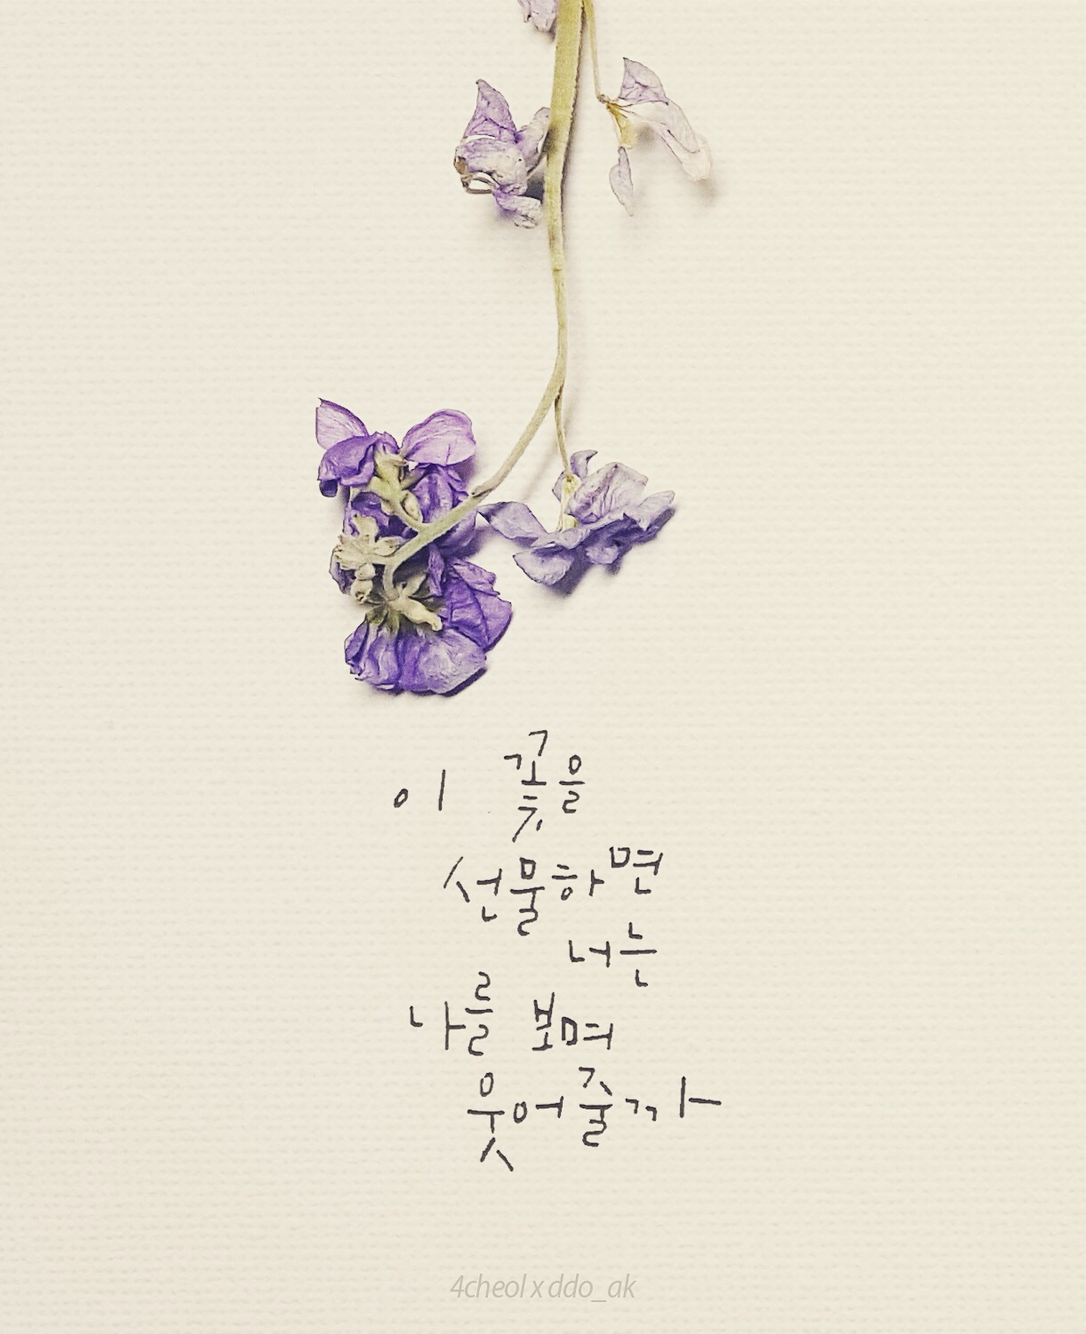 이 꽃을
선물하면
너는
나를 보며
웃어줄까
4cheol x ddo_ak